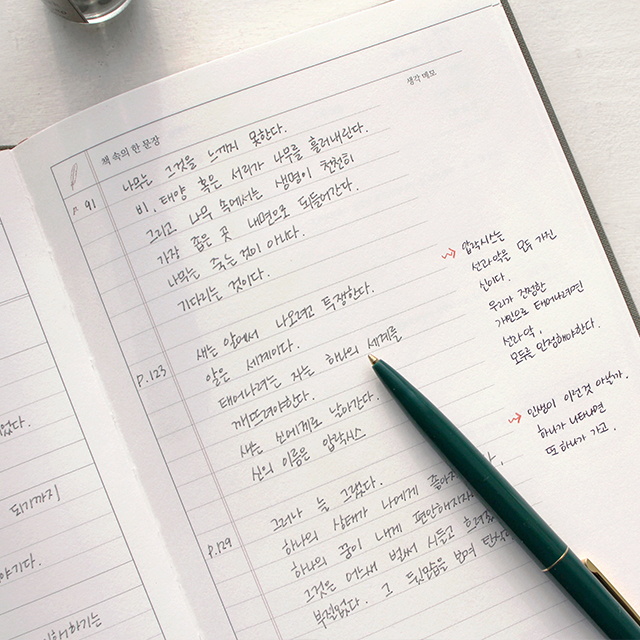 었다.
되기까지
야기다.
책 속의 한 문장
생각 메모
P. 91
나무는 그것을 느끼지 못한다.
비, 태양 혹은 서리가 나무를 흘러내린다.
그리고 나무 속에서는 생명이 천천히
가장 좁은 곳 내면으로 되돌아간다.
나무는 죽는 것이 아니다.
기다리는 것이다.
P.123
새는 알에서 나오려고 투쟁한다.
알은 세계이다.
태어나려는 자는 하나의 세계를
깨뜨려야한다.
새는 신에게로 날아간다.
신의 이름은 압락사스
P.129
그러나 늘 그랬다.
하나의 상태가 나에게 좋아지
하나의 꿈이 내게 편안해지자
그것은 어느새 벌써 시들고 흐려졌
부질없다. 그 뒷만을 보며 탄식
압락사스는
선과 악을 모두 가진
신이다.
우리가 진정한
가면으로 태어나려면
선과 악,
모두를 인정해야한다.
인생이 이런것 아닐까.
하나가 나타나면
또 하나가 가고.